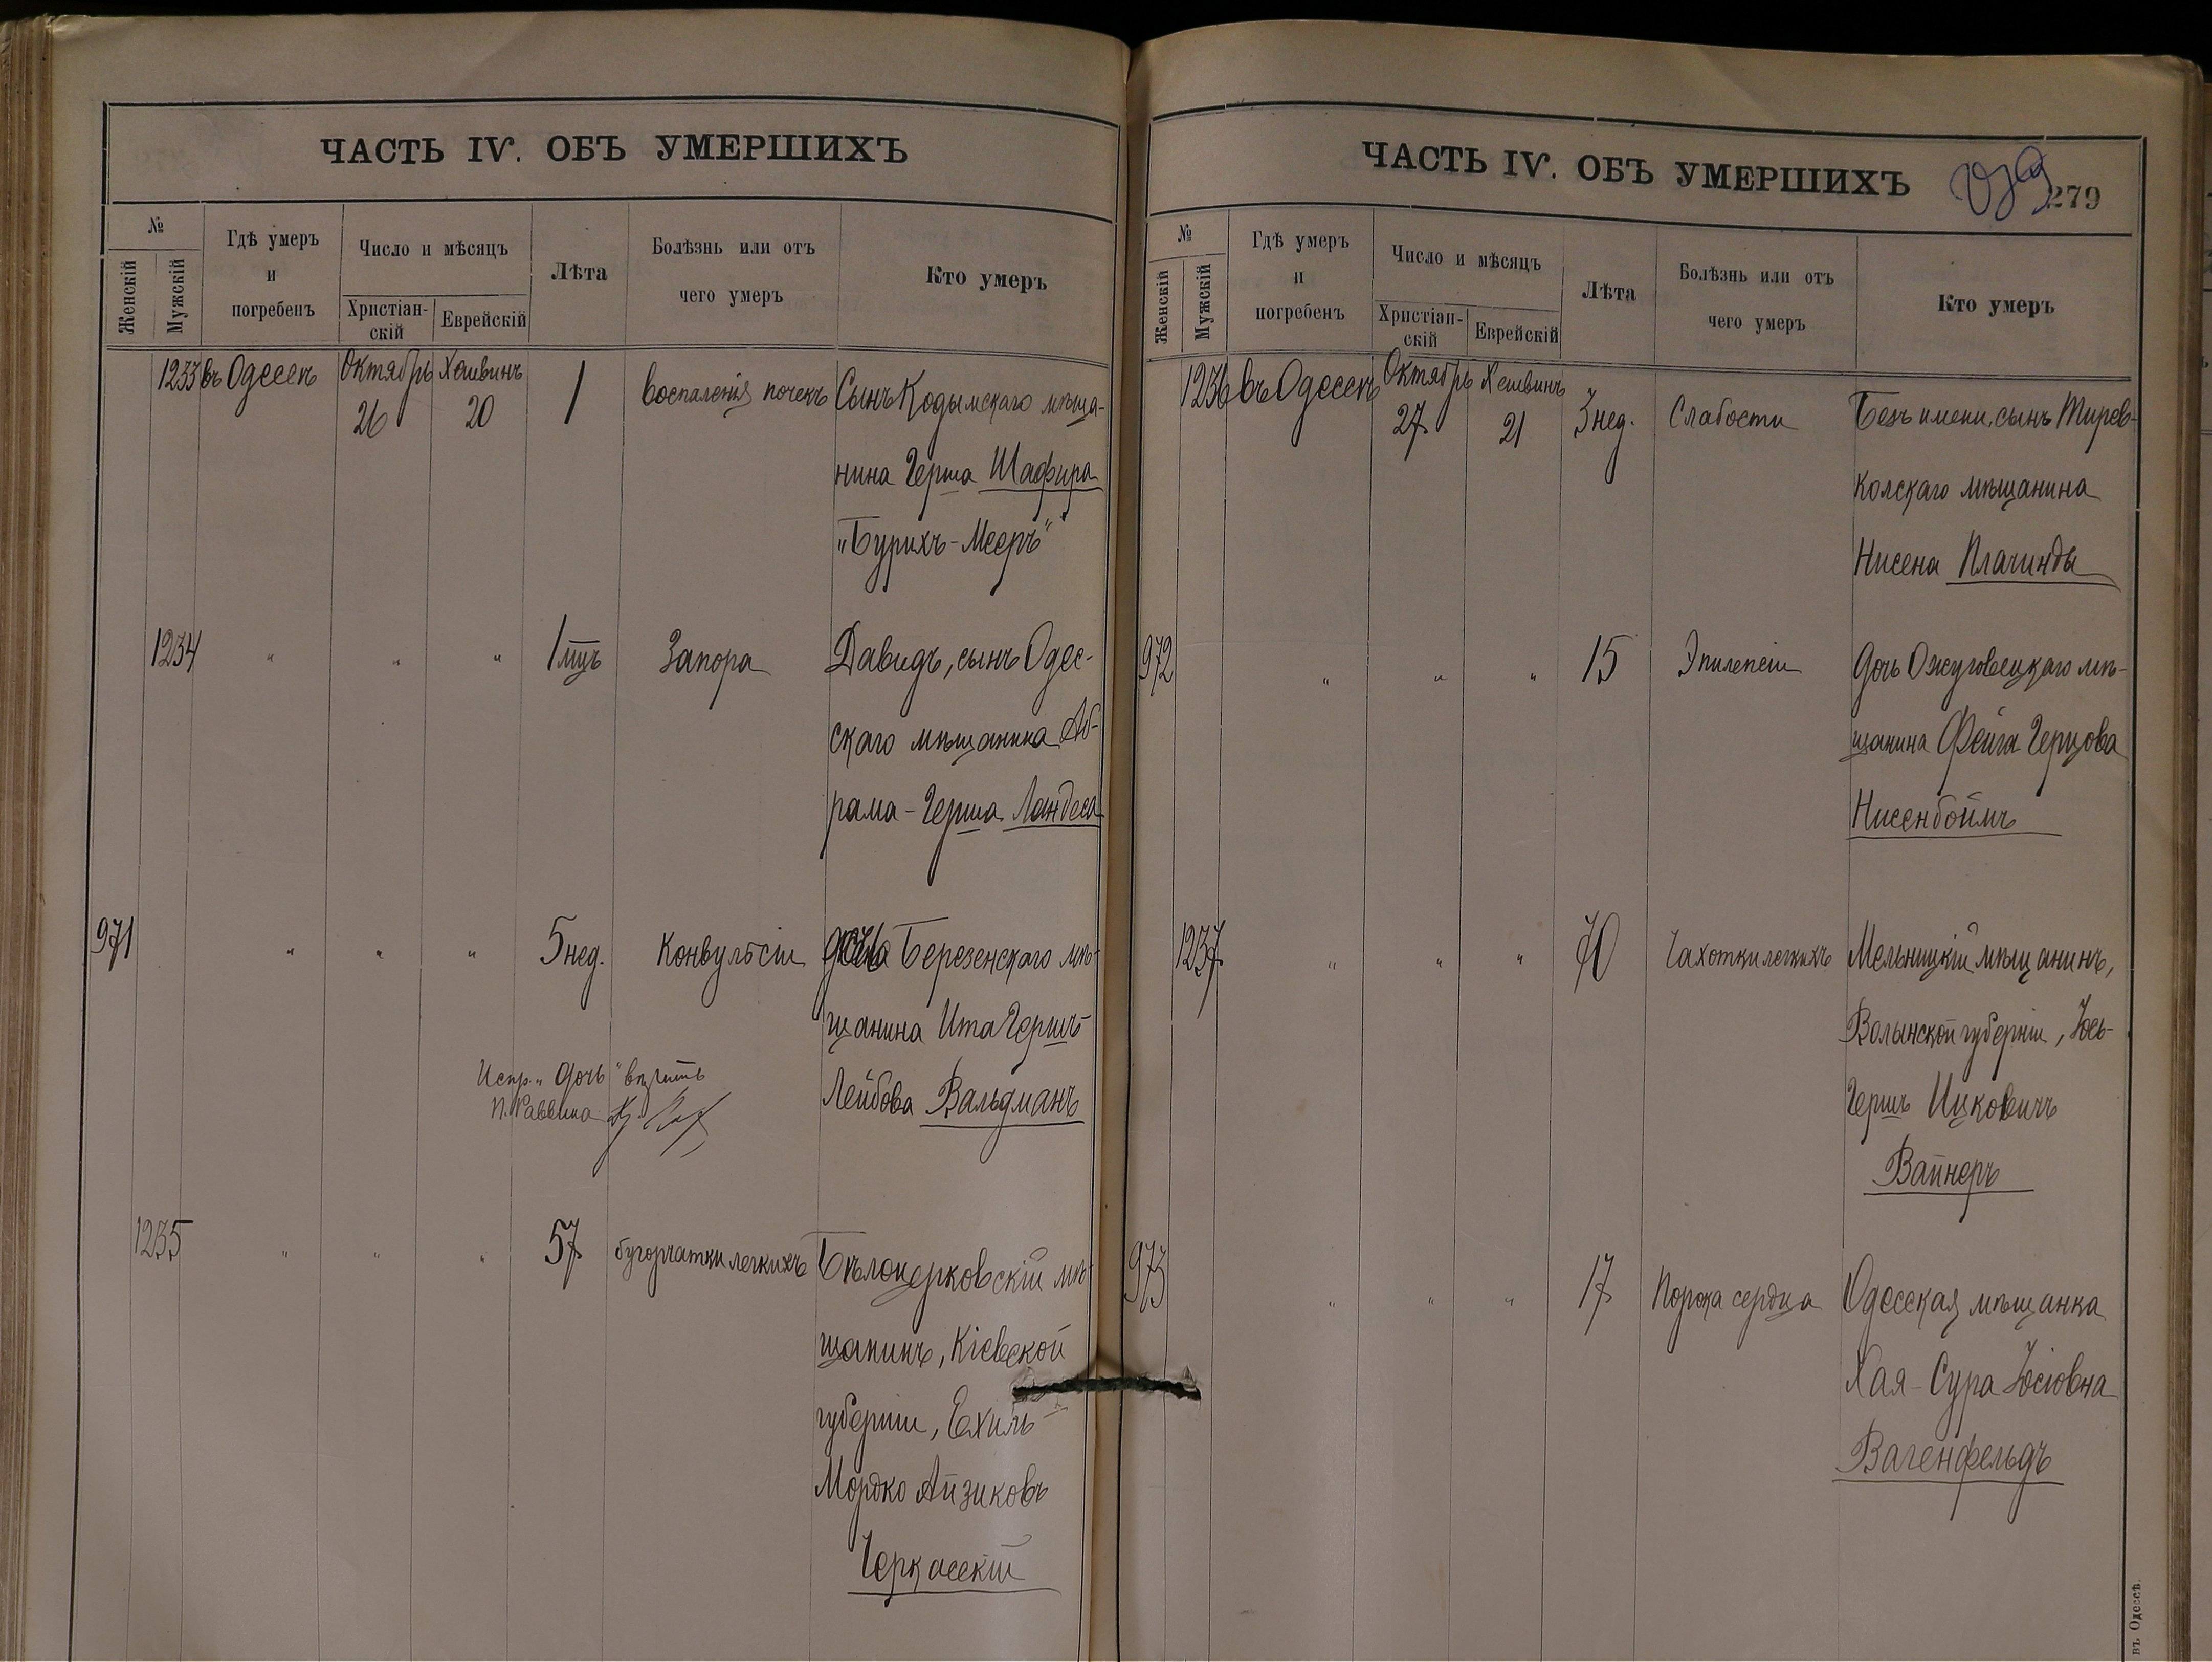 ЧАСТЬ IV. ОБЪ УМЕРШИХЪ
№
Женскій
Мужскій
Гдѣ умеръ
и
погребенъ
Число и мѣсяцъ
Христіан-
скій
Еврейскій
Лѣта
Болѣзнь или отъ
чего умеръ
Кто умеръ
1233 въ Одессѣ Октябрь Хешвинъ 1 воспаленія почекъ Сынъ Кодымскаго мѣща-
26 20
нина Герша Шафира
"Бурихъ-Мееръ"
1234 " " " 1 мцъ Запора Давидъ, сынъ Одес-
скаго мѣщанина Аб-
рама-Герша Ландеса
971 " " " 5 нед. Конвульсіи дочь Березенскаго мѣ-
щанина Ита Гершъ-
Лейбова Вальдманъ
Испр. "дочь" вѣрить
П. Раввина
1235 " " " 57 бугорчатки легкихъ Бѣлоцерковскій мѣ-
щанинъ, Кіевской
губерніи, Ехиль-
Мордко Айзиковъ
Черкасскій
ЧАСТЬ IV. ОБЪ УМЕРШИХЪ
279
279
№
Женскій
Мужскій
Гдѣ умеръ
и
погребенъ
Число и мѣсяцъ
Христіан-
скій
Еврейскій
Лѣта
Болѣзнь или отъ
чего умеръ
Кто умеръ
1236 въ Одессѣ Октябрь Хешвинъ 3 нед. Слабости Безъ имени, сынъ Мирев-
27 21
колскаго мѣщанина
Нисена Плачинды
972 " " " 15 Эпилепсіи Дочь Ожуговецкаго мѣ-
щанина Фейга Герцова
Нисенбоймъ
1237 " " " 70 Чахотки легкихъ Мельницкій мѣщанинъ,
Волынской губерніи, Іось-
Гершъ Ицковичъ
Вайнеръ
973 " " " 17 Порока сердца Одесская мѣщанка
Хая-Сура Іосіовна
Вагенфельдъ
въ Одессѣ.